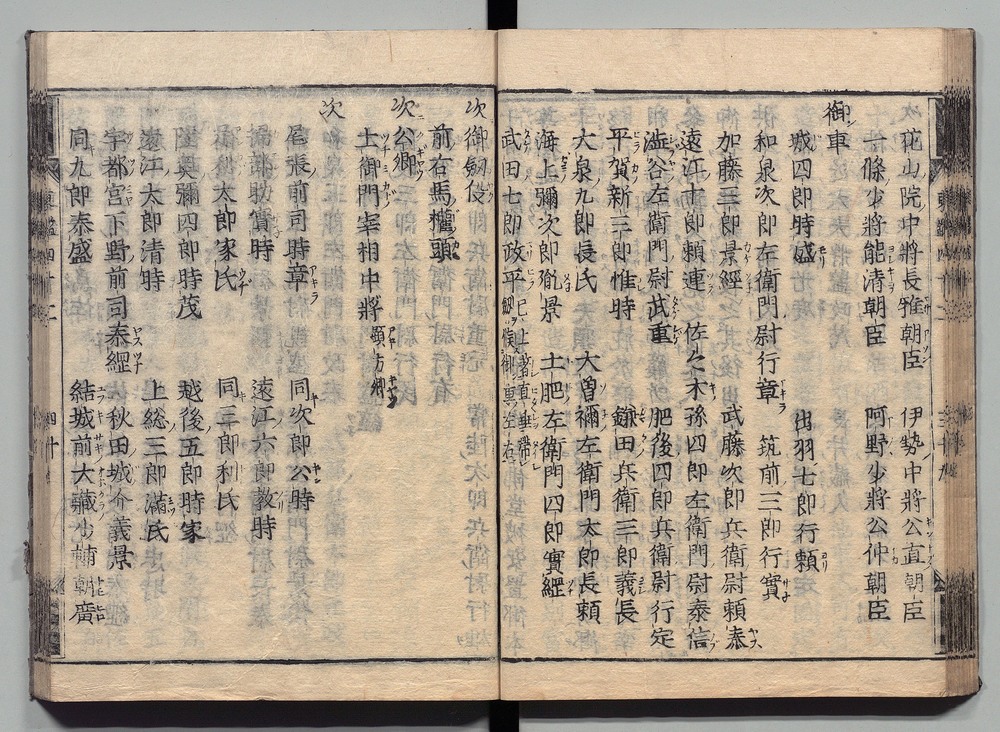 花山院中將長雅朝臣 伊勢中將公直朝臣
一條少將能清朝臣 阿野少將公仲朝臣
御車
城四郎時盛 出羽七郎行頼
和泉次郎左衛門尉行章 筑前三郎行實
加藤三郎景經 武藤次郎兵衛尉頼泰
遠江十郎頼連 佐々木孫四郎左衛門尉泰信
澁谷左衛門尉武重 肥後四郎兵衛尉行定
平賀新三郎惟時 鎌田兵衛三郎義長
大泉九郎長氏 大曽禰左衛門太郎長頼
海上彌次郎胤景 土肥左衛門四郎實經
武田七郎政平 已上著直垂帶釼候御輿左右
次御劔役
前右馬權頭
次公卿
土御門宰相中將 顕方卿
次
尾張前司時章 同次郎公時
掃部助實時 遠江六郎教時
太郎家氏 同三郎利氏
陸奥彌四郎時茂 越後五郎時家
遠江太郎清時 上総三郎滿氏
宇都宮下野前司泰經 秋田城介義景
同九郎泰盛 結城前大藏少輔朝廣
東鑑四十二 四十